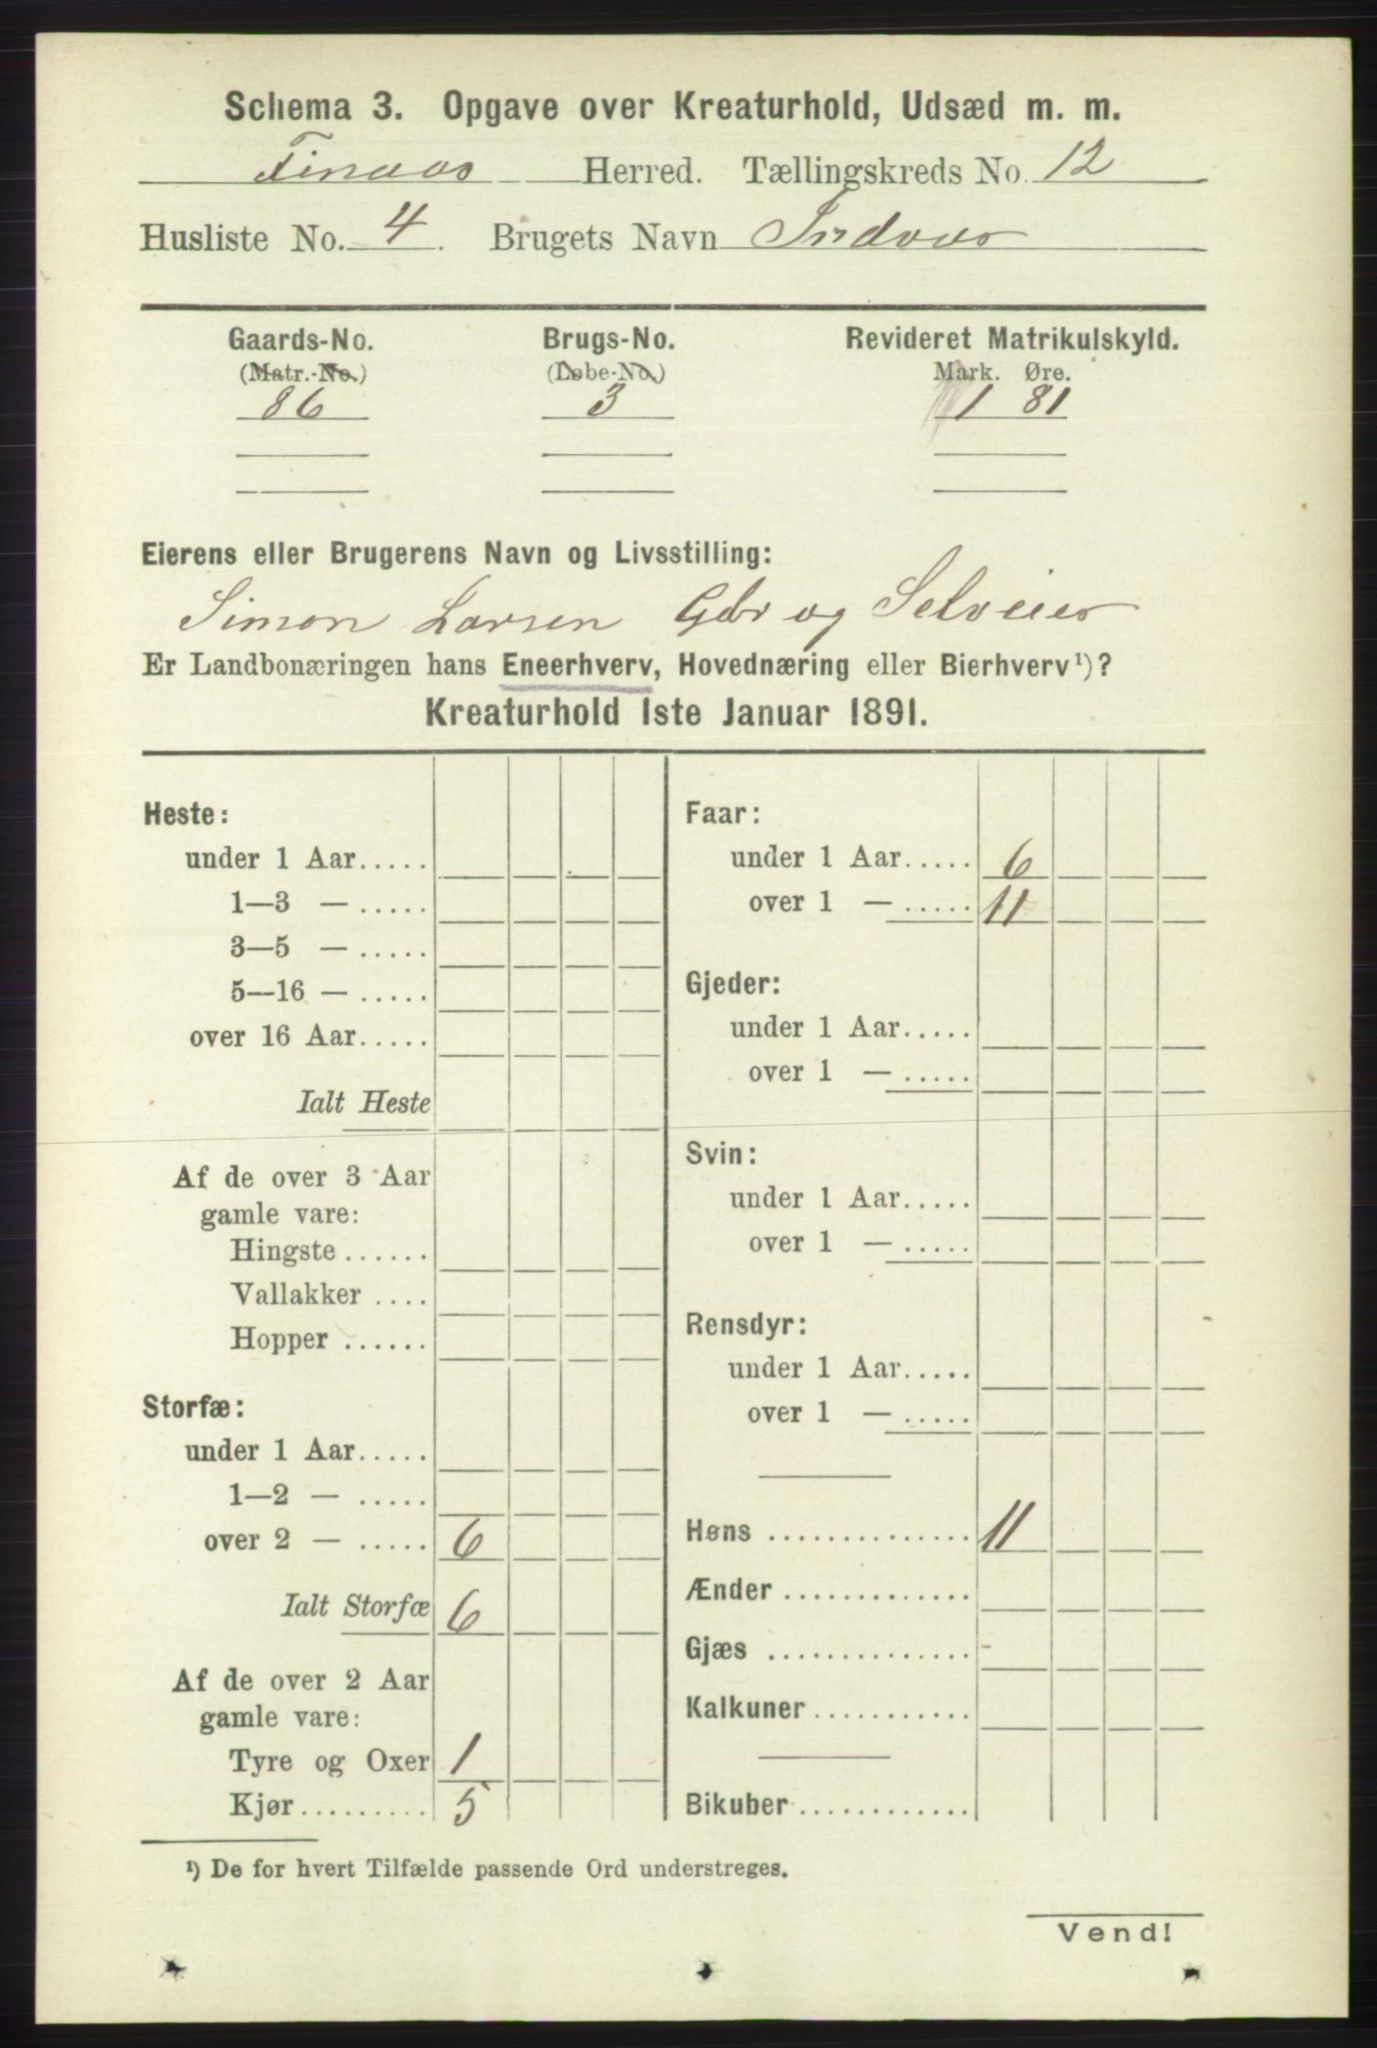 Schema 3. Opgave over Kreaturhold, Udsæd m. m.
Finaas Herred. Tællingskreds No. 12
Husliste No. 4. Brugets Navn Indvaas
Gaards-No. Brugs-No. Revideret Matrikulskyld.
(Matr.-No.) (Løbe-No.) Mark. Øre.
86 3 1 81
Eierens eller Brugerens Navn og Livsstilling:
Simon Larsen Gbr og Selveier
Er Landbonæringen hans Eneerhverv, Hovednæring eller Bierhverv¹)?
Kreaturhold 1ste Januar 1891.
Heste:
under 1 Aar.....
1—3 — .....
3—5 — .....
5—16 — .....
over 16 Aar.....
Ialt Heste
Af de over 3 Aar
gamle vare:
Hingste ......
Vallakker ....
Hopper ......
Storfæ:
under 1 Aar.....
1—2 — .....
over 2 — ..... 6
Ialt Storfæ 6
Af de over 2 Aar
gamle vare:
Tyre og Oxer 1
Kjør......... 5
Faar:
under 1 Aar..... 6
over 1 — ..... 11
Gjeder:
under 1 Aar.....
over 1 — .....
Svin:
under 1 Aar.....
over 1 — .....
Rensdyr:
under 1 Aar.....
over 1 — .....
Høns .............. 11
Ænder .............
Gjæs ..............
Kalkuner ...........
Bikuber ............
¹) De for hvert Tilfælde passende Ord understreges.
Vend!